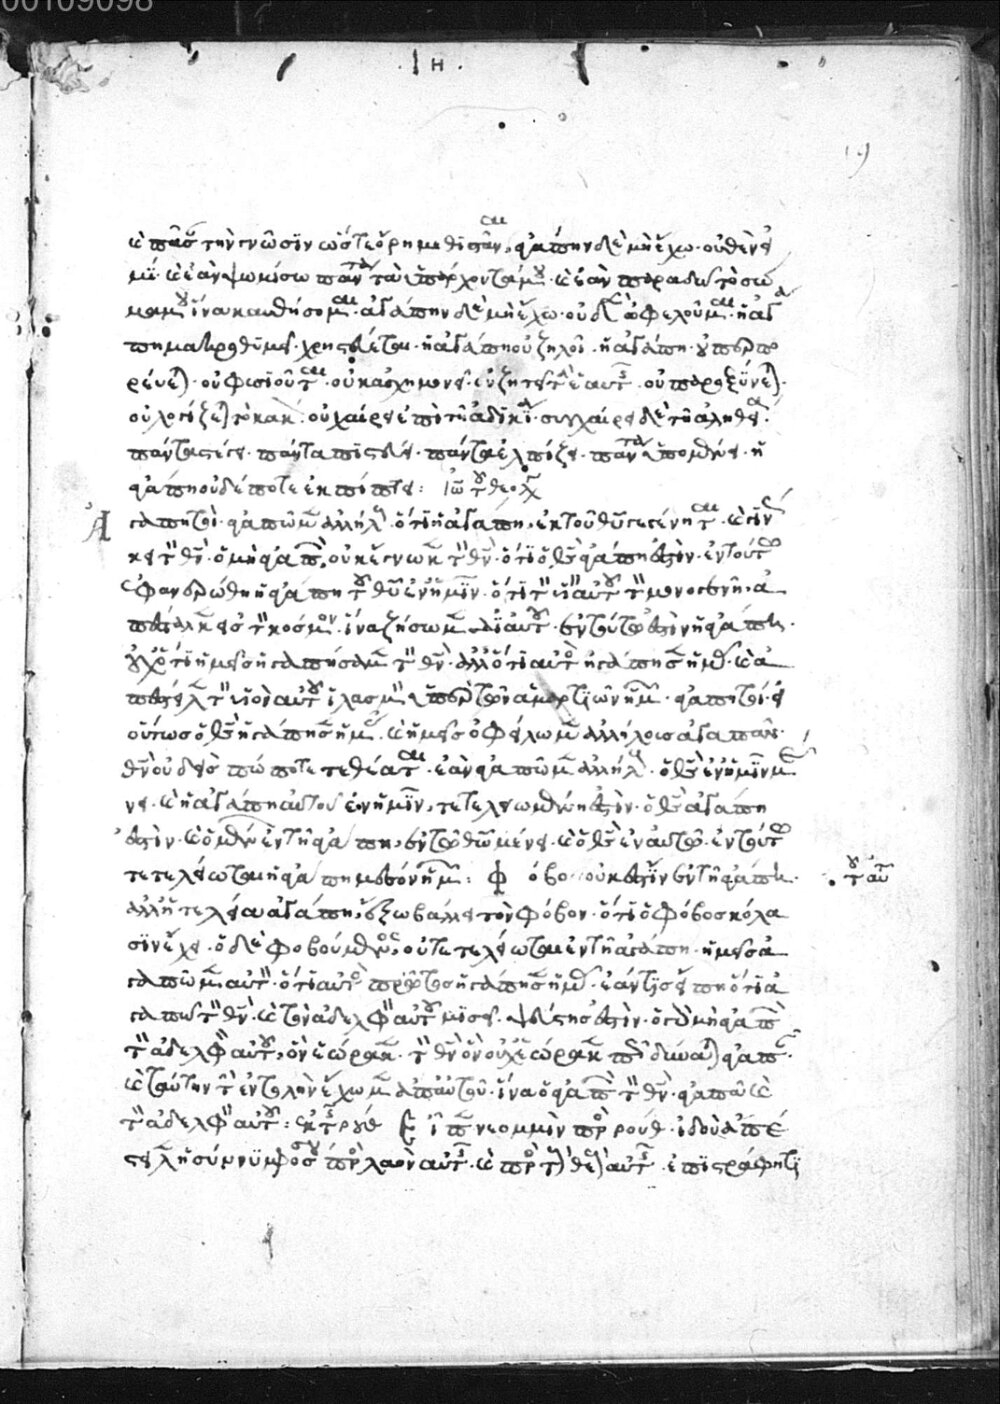 00109098
. | Η .
19
καὶ πᾶσαν τὴν γνῶσιν ὥστε ὄρη μεθιστᾶν, ἀγάπην δὲ μὴ ἔχω · οὐθέν εἰ
μι · καὶ ἐὰν ψωμίσω πάντα τὰ ὑπάρχοντά μου · καὶ ἐὰν παραδῶ τὸ σῶ
μα μου ἵνα καυθήσομαι · ἀγάπην δὲ μὴ ἔχω · οὐδὲν ὠφελοῦμαι · ἡ ἀγά
πη μακροθυμεῖ · χρηστεύεται · ἡ ἀγάπη οὐ ζηλοῖ · ἡ ἀγάπη · οὐ περπε
ρεύεται · οὐ φυσιοῦται · οὐκ ἀσχημονεῖ · οὐ ζητεῖ τὰ ἑαυτῆς · οὐ παροξύνεται ·
οὐ λογίζεται τὸ κακόν · οὐ χαίρει ἐπὶ τῇ ἀδικίᾳ · συγχαίρει δὲ τῇ ἀληθείᾳ ·
πάντα στέγει · πάντα πιστεύει · πάντα ἐλπίζει · πάντα ὑπομένει · ἡ
ἀγάπη οὐδέποτε ἐκπίπτει : Ἰω τοῦ θεολόγ
Ἀ
γαπητοί · ἀγαπῶμεν ἀλλήλους · ὅτι ἡ ἀγάπη, ἐκ τοῦ θῦ γεγένηται · καὶ γιν
κει τὸν θν · ὁ μὴ ἀγαπῶν, οὐκ ἔγνωκε τὸν θν · ὅτι ὁ θς ἀγάπη ἐστίν · ἐν τούτῳ
ἐφανερώθη ἡ ἀγάπη τοῦ θῦ ἐν ἡμῖν · ὅτι τὸν υἱὸν αὐτοῦ τὸν μονογενῆ · ἀ
πέσταλκεν εἰς τὸν κόσμον · ἵνα ζήσωμεν δι' αὐτοῦ · ἐν τούτῳ ἐστὶν ἡ ἀγάπη ·
οὐχ ὅτι ἡμεῖς ἠγαπήσαμεν τὸν θν · ἀλλ' ὅτι αὐτὸς ἠγάπησεν ἡμᾶς · καὶ ἀ
πέστειλε τὸν υἱὸν αὐτοῦ ἱλασμὸν ὑπὲρ τῶν ἁμαρτιῶν ἡμῶν · ἀγαπητοί · εἰ
οὕτως ὁ θς ἠγάπησεν ἡμᾶς · καὶ ἡμεῖς ὀφείλωμεν ἀλλήλοις ἀγαπᾶν ·
θν οὐδεὶς πώποτε τεθέαται · ἐὰν ἀγαπῶμεν ἀλλήλους · ὁ θς ἐν ἡμῖν μέ
νει · καὶ ἡ ἀγάπη αὐτοῦ ἐν ἡμῖν, τετελειωμένη ἐστίν · ὁ θς ἀγάπη
ἐστίν · καὶ ὁ μένων ἐν τῇ ἀγάπῃ, ἐν τῷ θῶ μένει · καὶ ὁ θς ἐν αὐτῷ · ἐν τούτῳ
τετελείωται ἡ ἀγάπη μεθ' ἡμῶν : Φόβος οὐκ ἔστιν ἐν τῇ ἀγάπῃ ·
τοῦ αὐτοῦ
ἀλλ' ἡ τελεία ἀγάπη, ἔξω βάλλει τὸν φόβον · ὅτι ὁ φόβος κόλα
σιν ἔχει · ὁ δὲ φοβούμενος, οὐ τετελείωται ἐν τῇ ἀγάπῃ · ἡμεῖς ἀ
γαπῶμεν αὐτὸν · ὅτι αὐτὸς πρῶτος ἠγάπησεν ἡμᾶς · ἐάν τις εἴπῃ ὅτι ἀ
γαπῶ τὸν θν · καὶ τὸν ἀδελφὸν αὐτοῦ μισεῖ · ψεύστης ἐστίν · ὁ γὰρ μὴ ἀγαπῶν
τὸν ἀδελφὸν αὐτοῦ, ὃν ἑώρακε · τὸν θν ὃν οὐχ ἑώρακε πῶς δύναται ἀγαπᾶν ·
καὶ ταύτην τὴν ἐντολὴν ἔχωμεν ἀπ' αὐτοῦ · ἵνα ὁ ἀγαπῶν τὸν θν · ἀγαπᾷ καὶ
τὸν ἀδελφὸν αὐτοῦ : Ἐκ τῆς ρουθ Ε ἰδοὺ ἀπέ
στειλεν ἡ σύννυμφός σου πρὸς λαὸν αὐτῆς · καὶ πρὸς τοὺς θεοὺς αὐτῆς · ἐπιστράφητι